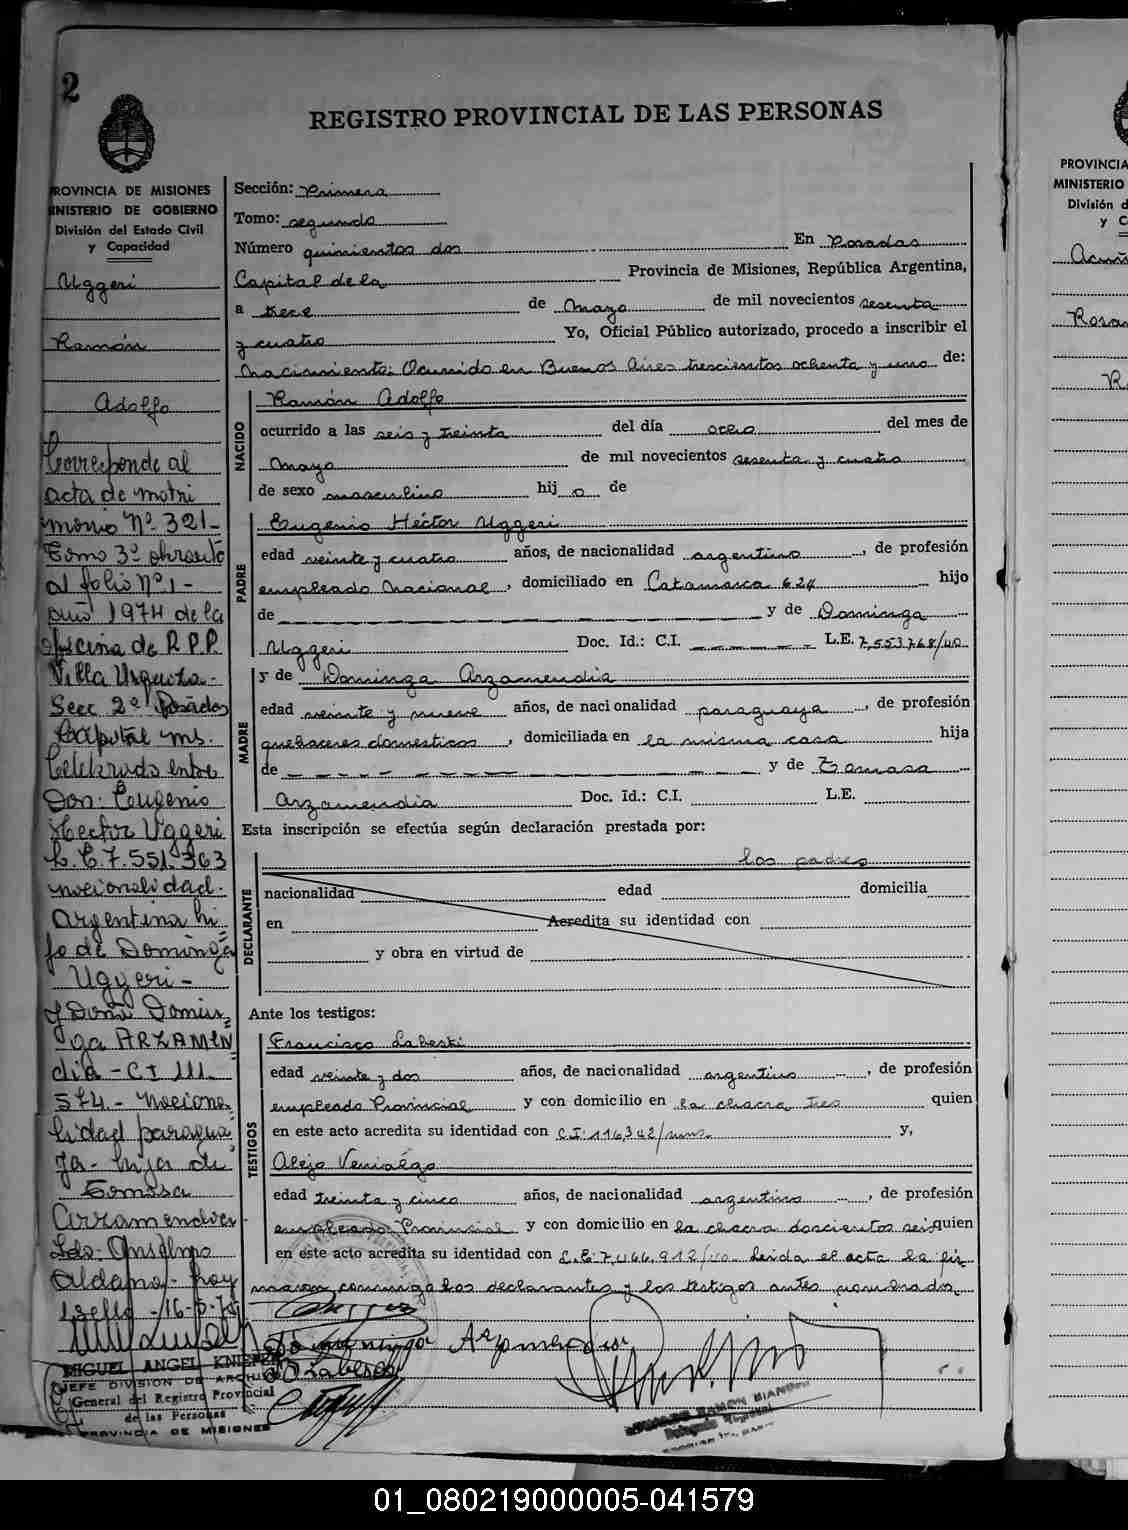 2
REGISTRO PROVINCIAL DE LAS PERSONAS
PROVINCIA DE MISIONES
MINISTERIO DE GOBIERNO
División del Estado Civil
y Capacidad
Uggeri
Ramón
Adolfo
Corresponde al
acta de matri
monio Nº 321-
Tomo 3º
al folio Nº 1-
año 1974 de la
oficina de R.P.P.
Villa Urquiza-
Secc 2º Posadas
Capital ms.
Celebrado entre
Don: Eugenio
Hector Uggeri
L.E. 7.551.363
nacionalidad
argentina hi
jo de Dominga
Uggeri-
y Doña Domin
ga ARZAMEN
dia - C I 111.
574.- naciona
lidad paragua
ya- hija de
Tomasa
Arzamendia
Ldo- Anselmo
Aldana- hay
sello -16-5-75
MIGUEL ANGEL KNIEPER
JEFE DIVISION DE ARCHIVO
General del Registro Provincial
de las Personas
PROVINCIA DE MISIONES
Sección: Primera
Tomo: segundo
Número quinientos dos En Posadas
Capital de la Provincia de Misiones, República Argentina,
a trece de mayo de mil novecientos sesenta
y cuatro Yo, Oficial Público autorizado, procedo a inscribir el
nacimiento: Ocurrido en Buenos Aires trescientos ochenta y uno de:
NACIDO
Ramón Adolfo
ocurrido a las seis y treinta del día ocho del mes de
mayo de mil novecientos sesenta y cuatro
de sexo masculino hij o de
PADRE
Eugenio Héctor Uggeri
edad veinte y cuatro años, de nacionalidad argentino, de profesión
empleado Nacional, domiciliado en Catamarca 624 hijo
de y de Dominga
Uggeri Doc. Id.: C.I. L.E. 7.553.768/40
MADRE
y de Dominga Arzamendia
edad veinte y nueve años, de nacionalidad paraguaya, de profesión
quehaceres domesticos, domiciliada en la misma casa hija
de y de Tomasa
Arzamendia Doc. Id.: C.I. L.E.
Esta inscripción se efectúa según declaración prestada por:
DECLARANTE
los padres
nacionalidad edad domicilia
en Acredita su identidad con
y obra en virtud de
Ante los testigos:
TESTIGOS
Francisco Labeski
edad veinte y dos años, de nacionalidad argentino, de profesión
empleado Provincial y con domicilio en la chacra tres quien
en este acto acredita su identidad con C.I: 116342/mns. y,
Alejo Venialgo
edad treinta y cinco años, de nacionalidad argentino, de profesión
empleado Provincial y con domicilio en la chacra doscientos seis quien
en este acto acredita su identidad con L.E: 7.466.912/40 Leida el acta la fir
maron conmigo los declarantes y los testigos antes nombrados.
Dominga Arzamendia
Delegado Regional
PROVINCIA
MINISTERIO
División d
y C
01_080219000005-041579